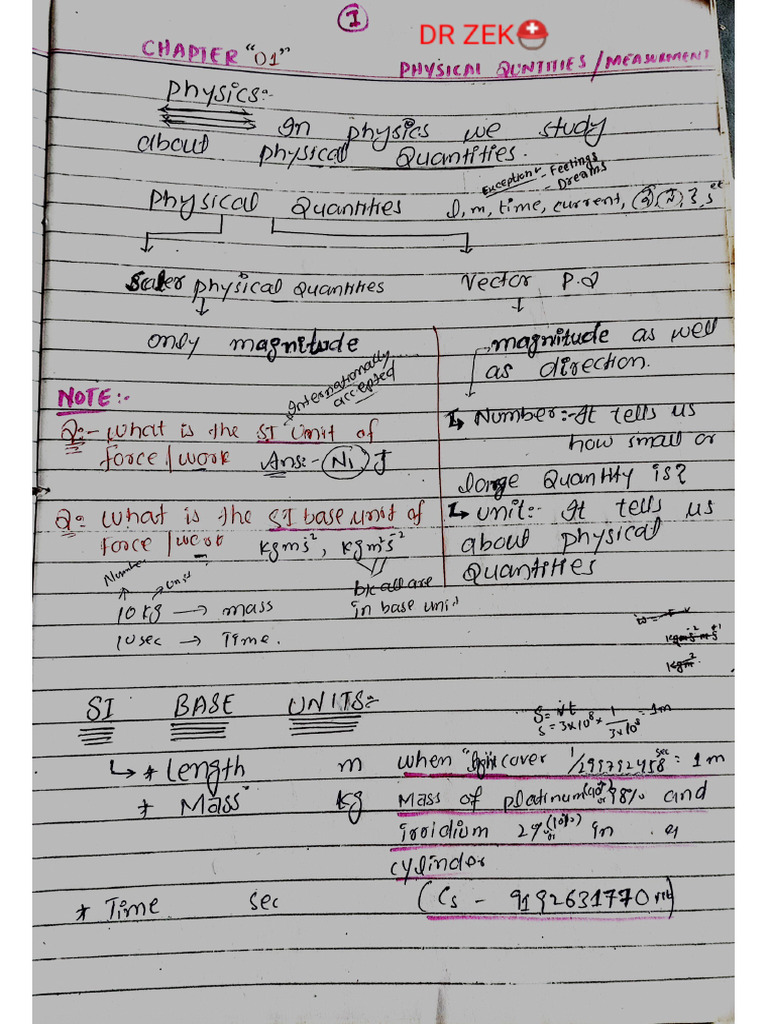 1
DR ZEK
CHAPTER "01"
PHYSICAL QUNTITIES/MEASURMENT
Physics:-
In physics we study
about physical Quantities.
Exception - Feelings
- Dreams
Physical Quantities l, m, time, current,
Scaler physical Quantities
Vector P.Q
only magnitude
magnitude as well
as direction.
Internationally
accepted
NOTE:-
Q:- What is the SI Unit of
force/work Ans:- N, J
Number:- It tells us
how small or
large Quantity is?
Q: What is the SI base unit of
force/work kgms⁻², kgm²s⁻²
unit:- It tells us
about physical
Quantities
Number Unit
bk all are
in base unit
10 kg → mass
10 sec → Time.
SI BASE UNITS:-
S = vt
s = 3x10⁸ x 1/3x10⁸ = 1m
* Length m When light cover 1/299792458 sec = 1m
* Mass kg Mass of platinum (90%) or 98% and
irridium 2% or (10%) in a
cylinder
* Time sec (Cs - 9192631770 vib)